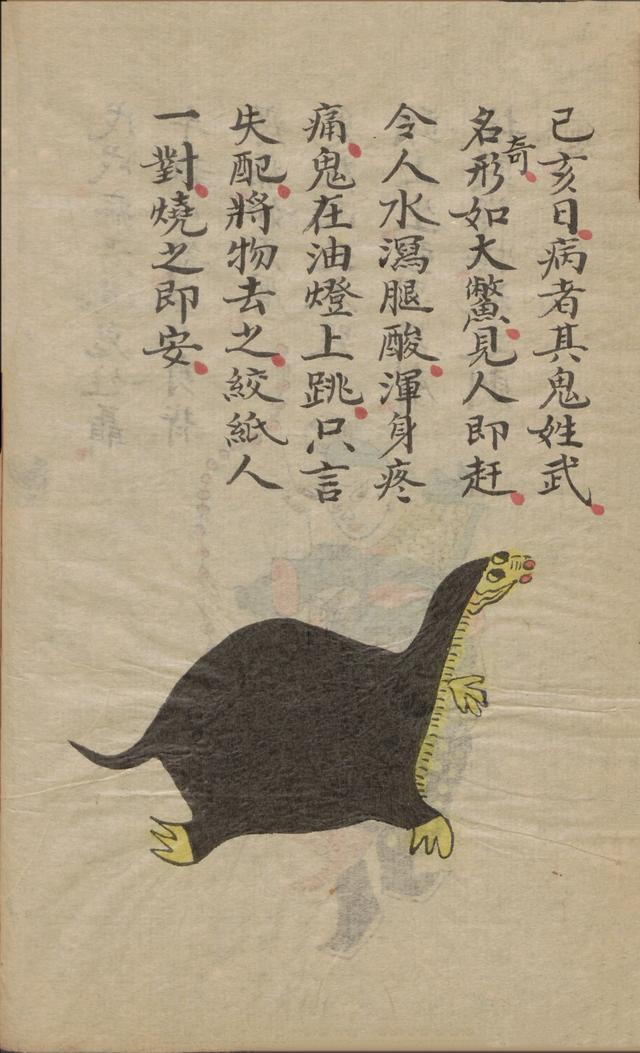 己亥日病者其鬼姓武
名奇形如大鱉見人即赶
令人水瀉腿酸渾身疼
痛鬼在油燈上跳只言
失配將物去之絞紙人
一對燒之即安